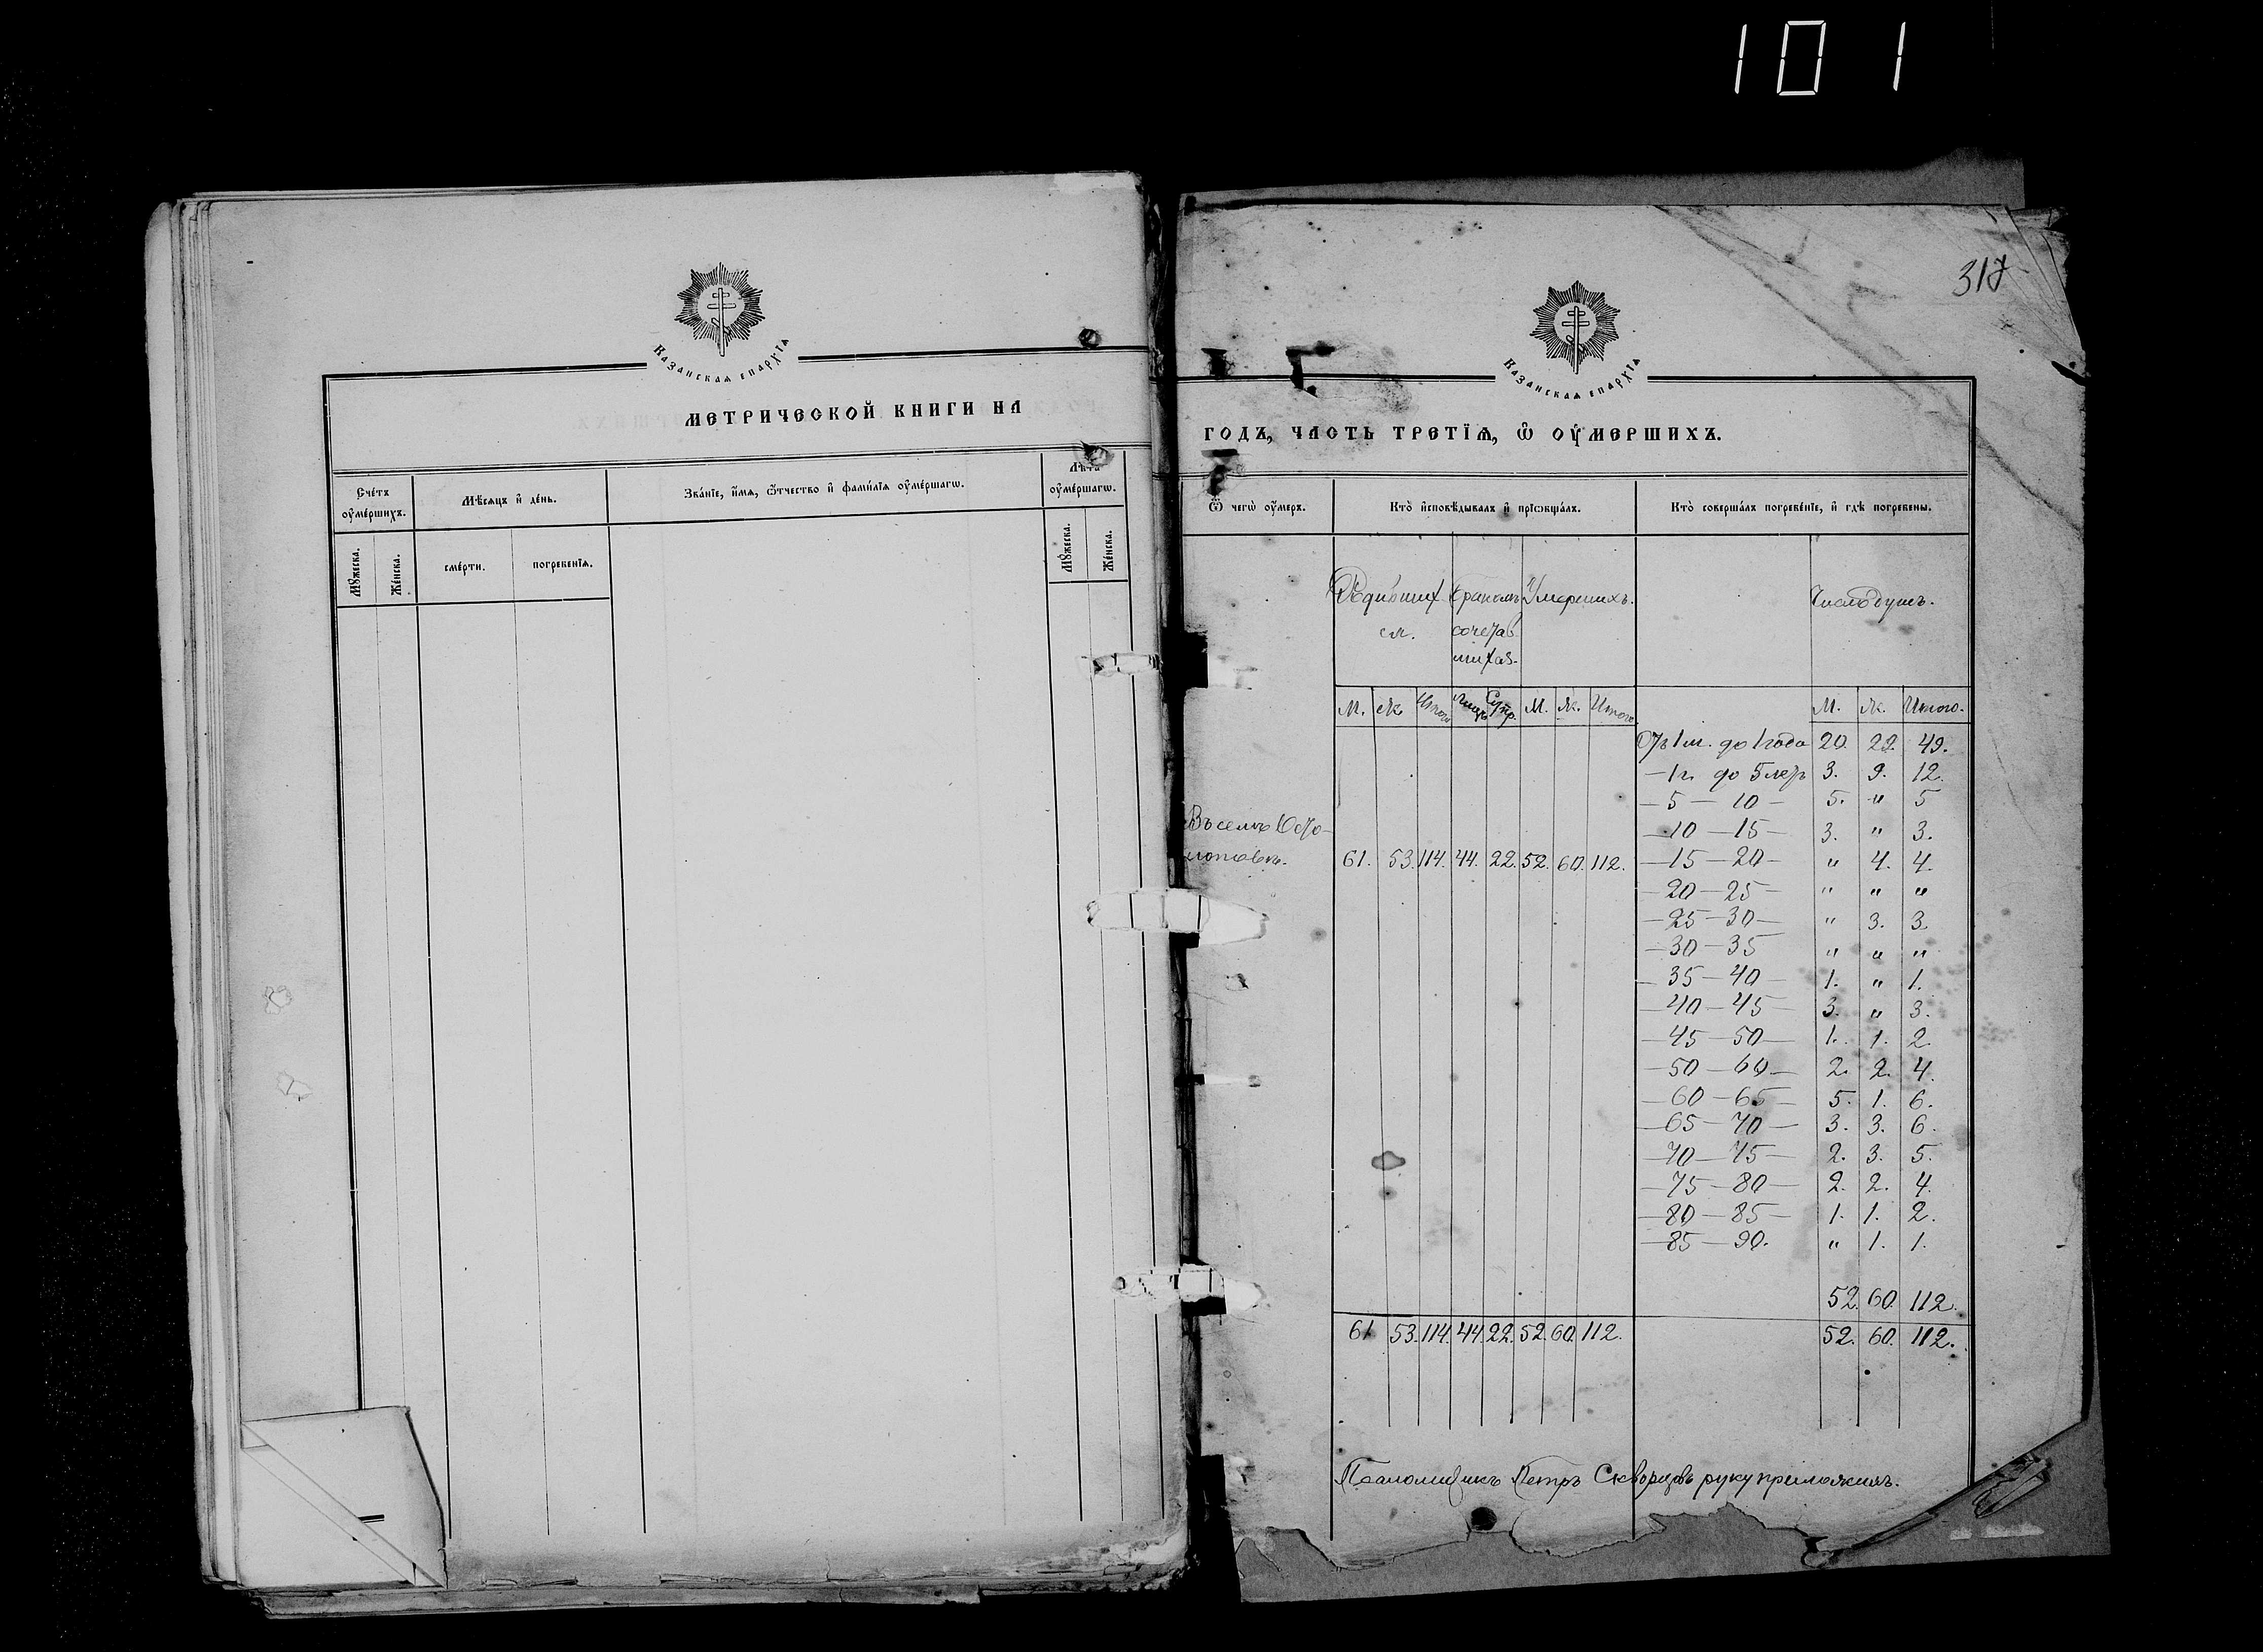 101
Казанская епархїа
МЕТРИЧЕСКОЙ КНИГИ НА
Счéтъ оу҆мéршихъ.
Мѣ́сяцъ и҆ дéнь.
Звáнїе, и҆́мѧ, ѻ҆́тчество и҆ фами́лїѧ оу҆мéршагѡ.
Лѣ́та оу҆мéршагѡ.
Мꙋ́жеска.
Же́нска.
смéрти.
погребенїѧ.
Мꙋ́жеска.
Же́нска.
317
Казанская епархїа
ГОДЪ, ЧАСТЬ ТРЕТЇѦ, Ѡ҆ ОУ҆МЕРШИХЪ.
Ѿ чегѡ̀ оу҆́меръ.
Ктѡ̀ и҆сповѣ́дывалъ и҆ прїѡбщáлъ.
Ктѡ̀ совершáлъ погребéнїе, и҆ гдѣ̀ погребены.
Родивших Бракомъ Умершихъ. Число душъ.
ся. сочетав
шихся.
М. Ж. Итого Лицъ Супр. М. Ж. Итого. М. Ж. Итого.
Отъ 1 м. до 1 года 20. 29. 49.
— 1 г. до 5 летъ 3. 9. 12.
— 5 — 10 — 5. " 5
— 10 — 15 — 3. " 3.
Въ селѣ
61. 53. 114. 44. 22. 52. 60. 112. — 15 — 20 — " 4. 4.
— 20 — 25 — " " "
— 25 — 30 — " 3. 3.
— 30 — 35 " " "
— 35 — 40 — 1. " 1.
— 40 — 45 — 3. " 3.
— 45 — 50 — 1. 1. 2.
— 50 — 60 — 2. 2. 4.
— 60 — 65 — 5. 1. 6.
— 65 — 70 — 3. 3. 6.
— 70 — 75 — 2. 3. 5.
— 75 — 80 — 2. 2. 4.
— 80 — 85 — 1. 1. 2.
— 85 — 90. " 1. 1.
52. 60. 112.
61 53. 114. 44. 22. 52. 60. 112. 52. 60. 112.
Псаломщикъ Петръ Скворцовъ руку приложилъ.